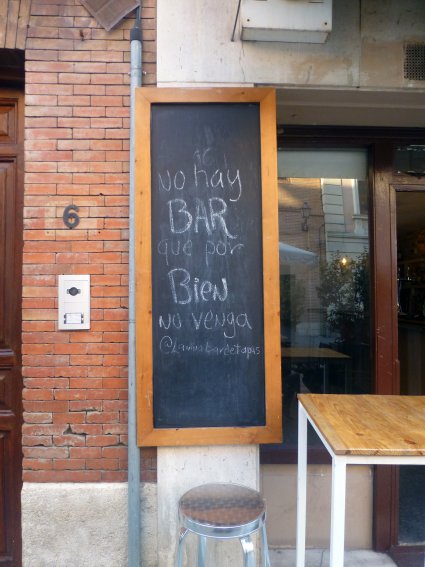 6
no hay
BAR
que por
Bien
no venga